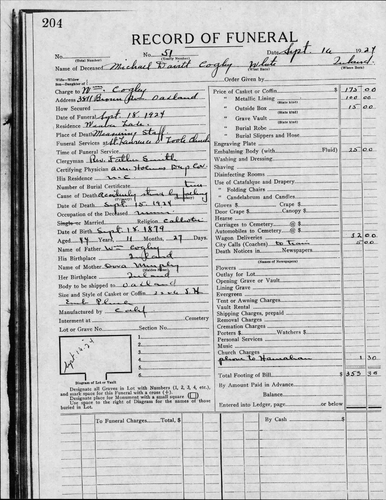 204
RECORD OF FUNERAL
No. No. 51 Date Sept. 16 1929
(Total Number) (Yearly Number)
Name of Deceased Michael Davitt Cogly White Ireland
(What Race) (Where Born)
Charge to Wm Cogly
Address Oakland
How Secured
Date of Funeral Sept. 18. 1929
Residence
Place of Death
Funeral Services at St Lawrence O Toole Church
Time of Funeral Service
Clergyman Rev. Father Smith
Certifying Physician
His Residence
Number of Burial Certificate
Cause of Death
Date of Death Sept 15 1929
Occupation of the Deceased miner
Single or Married Religion Catholic
Date of Birth Sept 18. 1879
Aged Years 11 Months 27 Days
Name of Father Wm Cogly
His Birthplace Ireland
Name of Mother Murphy
Her Birthplace Ireland
Body to be shipped to Oakland
Size and Style of Casket or Coffin
Manufactured by
Interment at Cemetery
Lot or Grave No. Section No.
Diagram of Lot or Vault
Designate all Graves in Lot with Numbers (1, 2, 3, 4, etc.), and mark space for this Funeral with a cross (+)
Designate place for Monument with a small square
Use space to the right of Diagram for the names of those buried in Lot.
Order Given by
Price of Casket or Coffin $ 175 00
" Metallic Lining
" Outside Box 15 00
" Grave Vault
" Burial Robe
" Burial Slippers and Hose
Engraving Plate
Embalming Body (with Fluid) 25 00
Washing and Dressing
Shaving
Disinfecting Rooms
Use of Catafalque and Drapery
" Folding Chairs
" Candelabrum and Candles
Gloves $ Crape $
Door Crape $ Canopy $
Hearse
Carriages to Cemetery @ $
Automobiles to Cemetery @ $
Wagon Deliveries
City Calls (Coaches) to train 5 00
Death Notices in Newspapers
Flowers
Outlay for Lot
Opening Grave or Vault
Lining Grave
Evergreen
Tent or Awning Charges
Vault Rental
Shipping Charges, prepaid
Removal Charges
Cremation Charges
Porters $ Watchers $
Personal Services
Music
Church Charges
phone to Hanrahan 1 30
Total Footing of Bill $ 353
By Amount Paid in Advance
Balance
Entered into Ledger, page or below.
To Funeral Charges, Total $
By Cash $